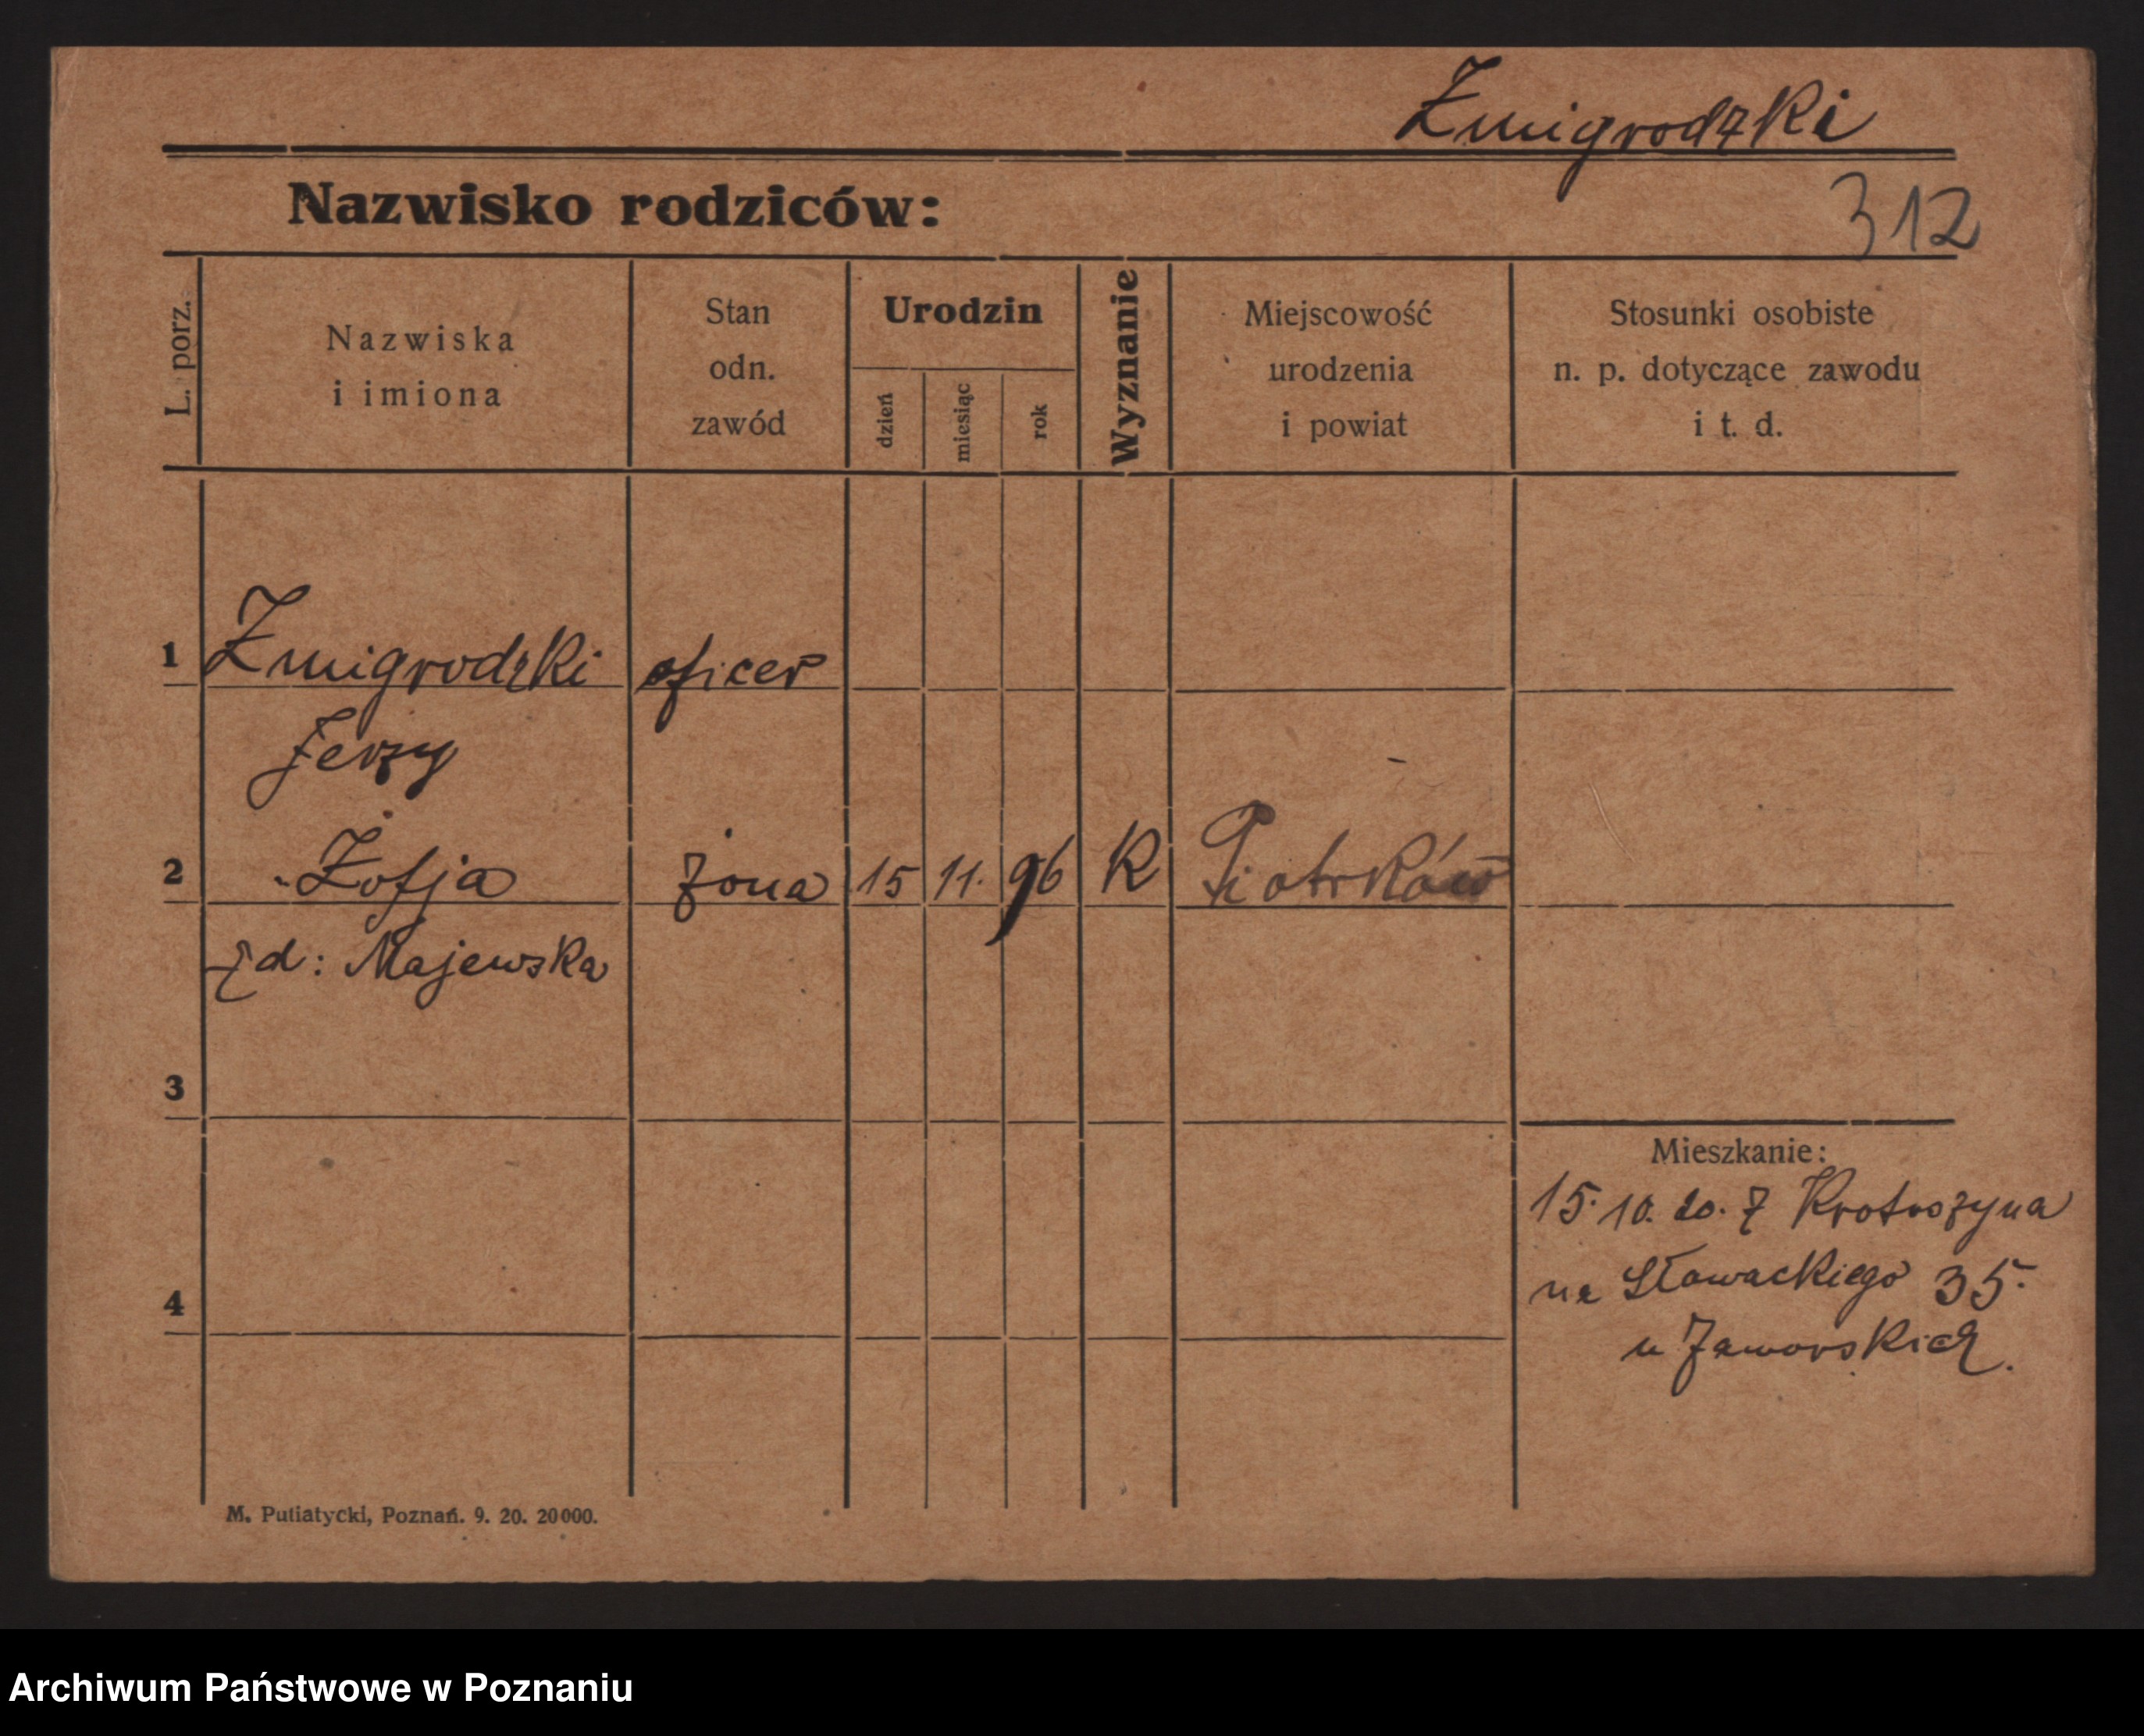 Żmigrodzki
Nazwisko rodziców:
312
L. porz.
Nazwiska
i imiona
Stan
odn.
zawód
Urodzin
dzień
miesiąc
rok
Wyznanie
Miejscowość
urodzenia
i powiat
Stosunki osobiste
n. p. dotyczące zawodu
i t. d.
1 Żmigrodzki oficer
Jerzy
2 Zofja żona 15 11. 96 K Piotrków
zd: Majewska
3
Mieszkanie:
15. 10. 20. z Krotoszyna
na Słowackiego 35.
4
u Jaworskich.
M. Putiatycki, Poznań. 9. 20. 20000.
Archiwum Państwowe w Poznaniu